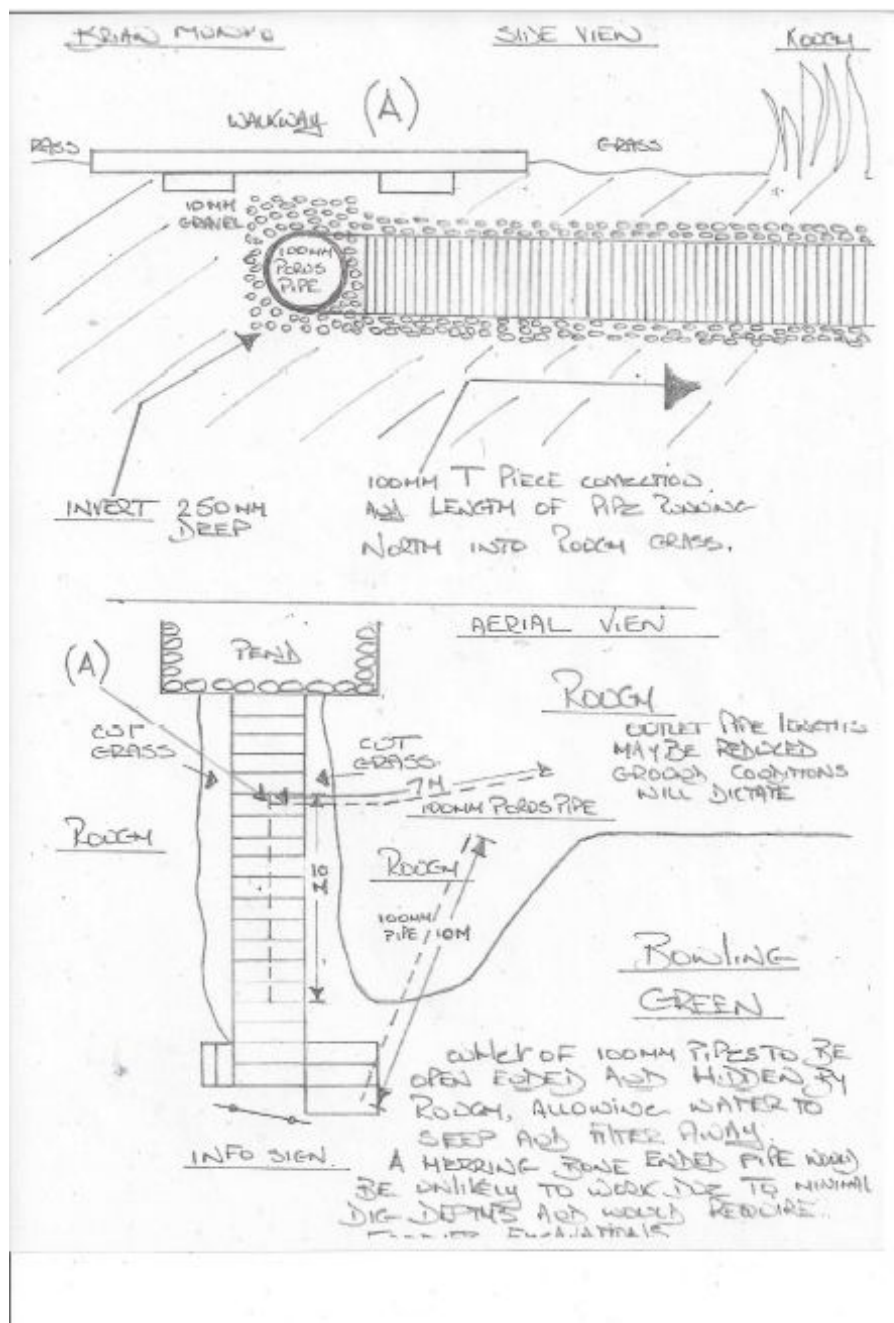 BRIAN MUNRO
SIDE VIEW
ROUGH
WALKWAY
(A)
RASS
GRASS
10MM
GRAVEL
100MM
POROS
PIPE
INVERT 250MM
DEEP
100MM T PIECE CONNECTION
AND LENGTH OF PIPE RUNNING
NORTH INTO ROUGH GRASS.
AERIAL VIEW
(A)
POND
ROUGH
OUTLET PIPE LENGTHS
MAY BE REDUCED
GROUND CONDITIONS
WILL DICTATE
CUT
GRASS
CUT
GRASS
7M
100MM POROS PIPE
ROUGH
10
M
ROUGH
100MM
PIPE 10M
BOWLING
GREEN
OUTLET OF 100MM PIPES TO BE
OPEN ENDED AND HIDDEN BY
ROUGH, ALLOWING WATER TO
SEEP AND FILTER AWAY.
A HERRING BONE ENDED PIPE WOULD
BE UNLIKELY TO WORK DUE TO MINIMAL
DIG DEPTHS AND WOULD REQUIRE
INFO SIGN.